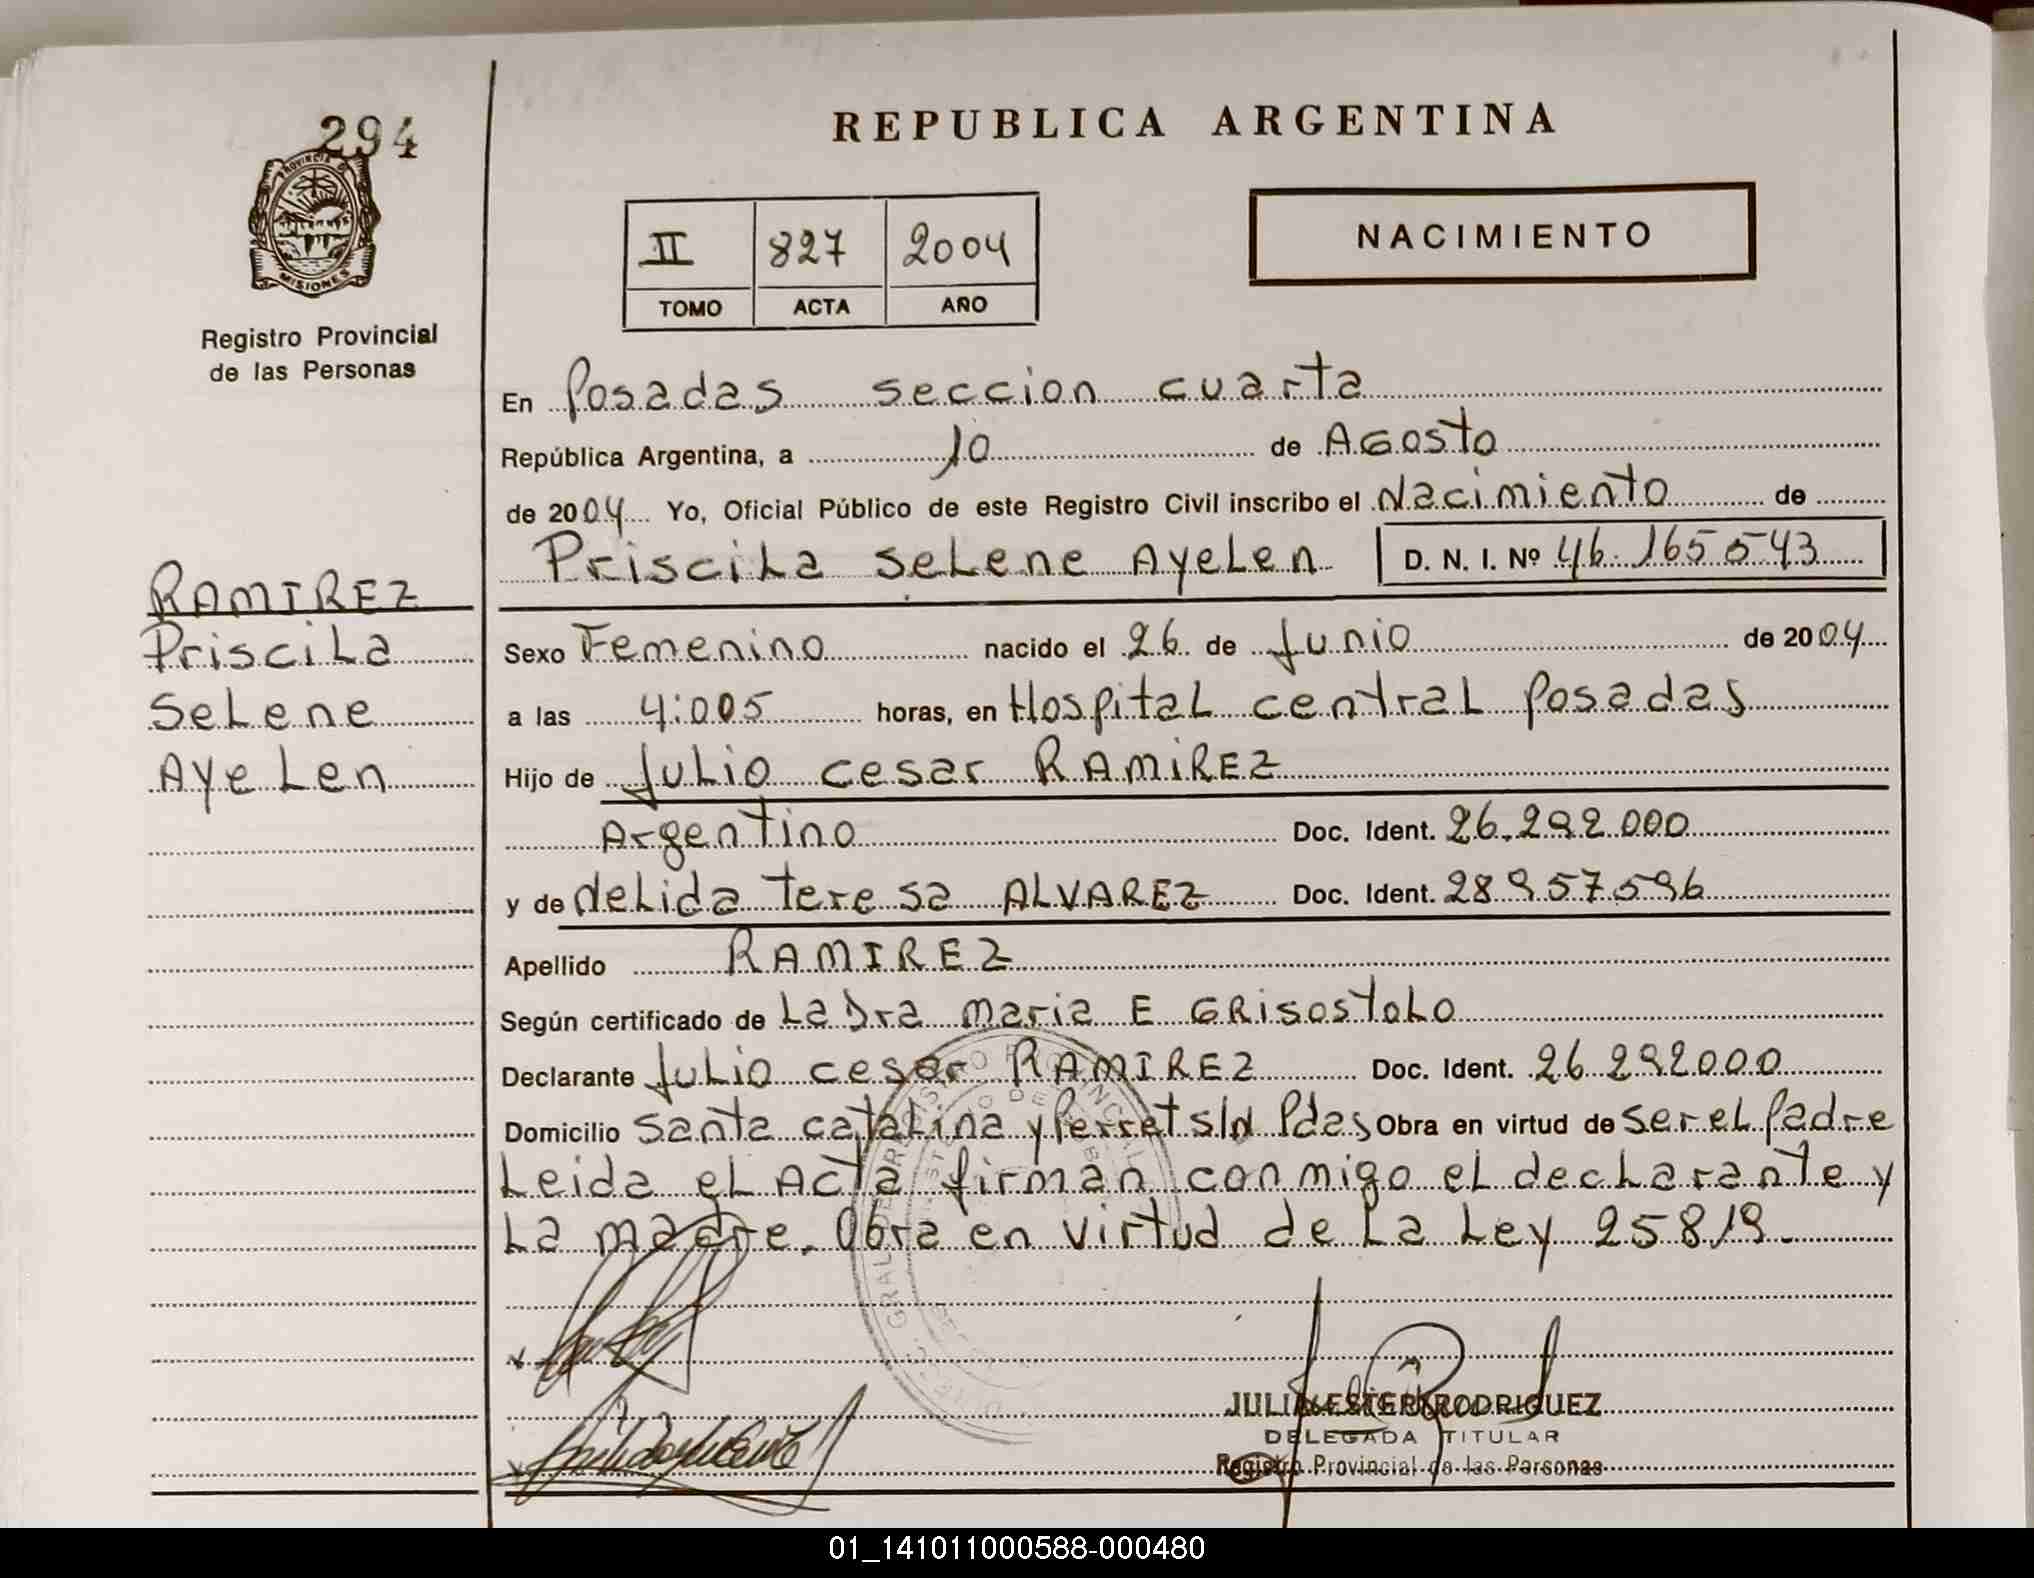 294
PROVINCIA DE
MISIONES
Registro Provincial
de las Personas
RAMIREZ
Priscila
Selene
Ayelen
REPUBLICA ARGENTINA
II 827 2004
TOMO ACTA AÑO
NACIMIENTO
En Posadas seccion cuarta
República Argentina, a 10 de Agosto
de 2004 Yo, Oficial Público de este Registro Civil inscribo el Nacimiento de
Priscila Selene Ayelen D. N. I. Nº 46.165543
Sexo Femenino nacido el 26 de Junio de 2004
a las 4:005 horas, en Hospital central Posadas
Hijo de Julio cesar RAMIREZ
Argentino Doc. Ident. 26.292.000
y de delida teresa ALVAREZ Doc. Ident. 28957596
Apellido RAMIREZ
Según certificado de La Dra maria E GRisostolo
Declarante Julio cesar RAMIREZ Doc. Ident. 26292000
Domicilio Santa catalina y Perret s/n Pdas Obra en virtud de ser el Padre
Leida el Acta firman conmigo el declarante y
La madre. Obra en virtud de La Ley 25819.
JULIA ESTER RODRIGUEZ
DELEGADA TITULAR
Registro Provincial de las Personas
01_141011000588-000480